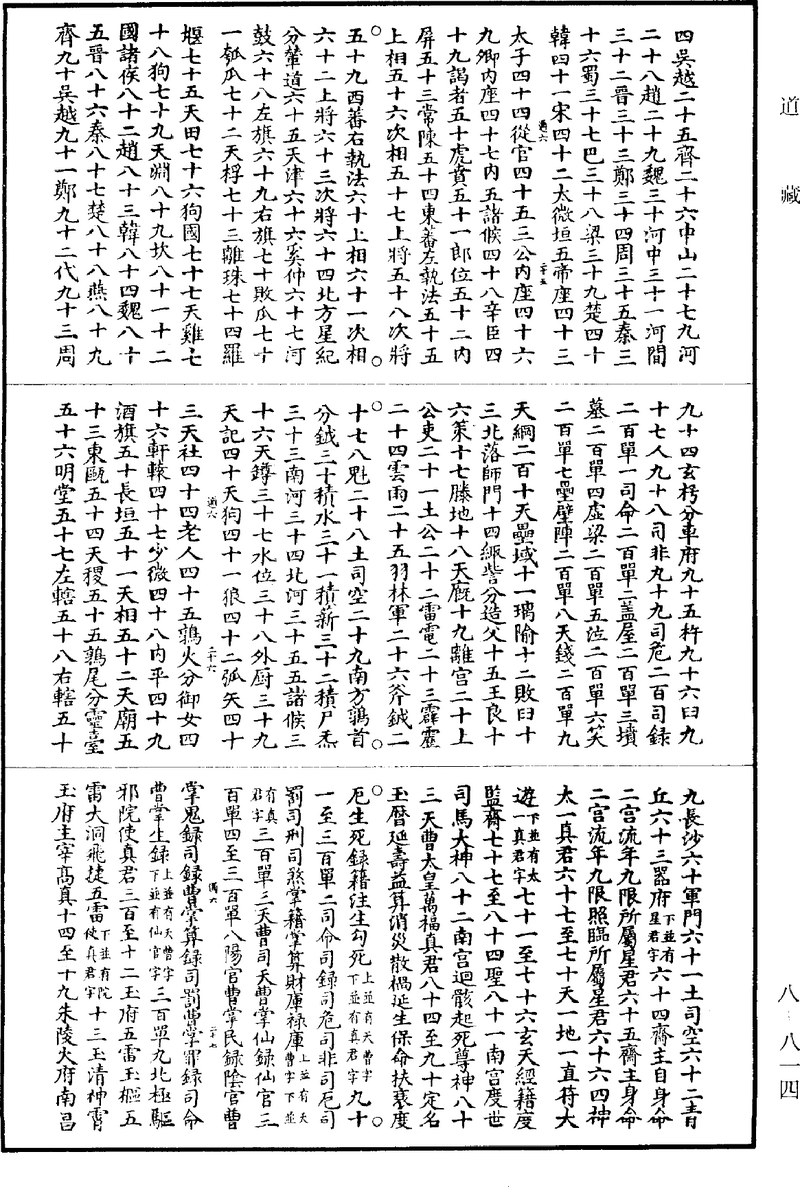 道藏
四吳越二十五齊二十六中山二十七九河
二十八趙二十九魏三十河中三十一河間
三十二晉三十三鄭三十四周三十五秦三
十六蜀三十七巴三十八梁三十九楚四十
韓四十一宋四十二太微垣五帝座四十三
太子四十四從官四十五三公內座四十六
九卿內座四十七內五諸候四十八辛臣四
十九謁者五十虎賁五十一郎位五十二內
屏五十三常陳五十四東蕃左執法五十五
上相五十六次相五十七上將五十八次將
五十九西蕃右執法六十上相六十一次相
六十二上將六十三次將六十四北方星紀
分輦道六十五天津六十六奚仲六十七河
鼓六十八左旗六十九右旗七十敗瓜七十
一瓠瓜七十二天桴七十三離珠七十四羅
堰七十五天田七十六狗國七十七天雞七
十八狗七十九天淵八十九坎八十一十二
國諸侯八十二趙八十三韓八十四魏八十
五晉八十六秦八十七楚八十八燕八十九
齊九十吳越九十一鄭九十二代九十三周
九十四玄枵分車府九十五杵九十六臼九
十七人九十八司非九十九司危二百司録
二百單一司命二百單二蓋屋二百單三墳
墓二百單四虛梁二百單五泣二百單六哭
二百單七壘壁陣二百單八天錢二百單九
天綱二百十天壘域十一璃瑜十二敗臼十
三北落師門十四娵訾分造父十五王良十
六策十七螣地十八天廐十九離宮二十上
公吏二十一土公二十二雷電二十三霹靂
二十四雲雨二十五羽林軍二十六斧鉞二
十七八魁二十八土司空二十九南方鶉首
分鉞三十積水三十一積薪三十二積尸炁
三十三南河三十四北河三十五五諸候三
十六天罇三十七水位三十八外厨三十九
天記四十天狗四十一狼四十二弧矢四十
三天社四十四老人四十五鶉火分御女四
十六軒轅四十七少微四十八內平四十九
酒旗五十長垣五十一天相五十二天廟五
十三東甌五十四天稷五十五鶉尾分靈臺
五十六明堂五十七左轄五十八右轄五十
九長沙六十軍門六十一土司空六十二青
丘六十三器府下並有星君字六十四齋主自身命
二宮流年九限所屬星君六十五齋主身命
二宮流年九限照臨所屬星君六十六四神
太一真君六十七至七十天一地一直符大
遊下並有太一真君字七十一至七十六玄天經籍度
監齋七十七至八十四聖八十一南宮度世
司馬大神八十二南宮迴骸起死尊神八十
三天曹太皇萬福真君八十四至九十定名
玉曆延壽益算消災散禍延生保命扶衰度
厄生死録籍注生勾死上並有天曹字下並有真君字九十
一至三百單二司命司録司危司非司厄司
罰司刑司煞掌籍掌算財庫禄庫上並有天曹字下並
有真君字三百單三天曹司天曹掌仙録仙官三
百單四至三百單八陽官曹掌民録陰官曹
掌鬼録司録曹掌算録司罰曹掌罪録司命
曹掌生録上並有天曹字下並有仙官字三百單九北極驅
邪院使真君三百至十二玉府五雷玉樞五
雷大洞飛捷五雷下並有院使真君字十三玉清神霄
玉府主宰高真十四至十九朱陵火府南昌
八·八一四